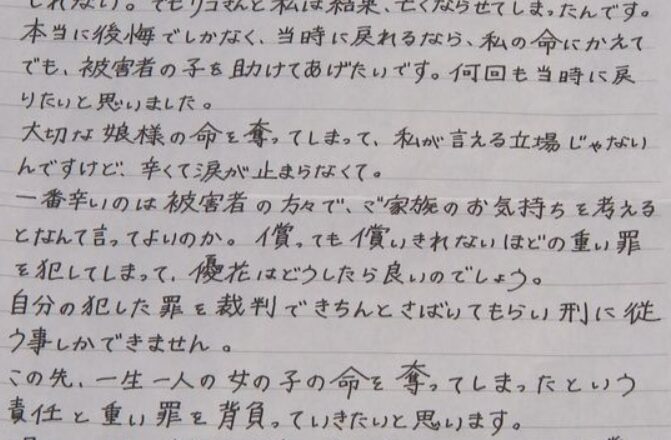 しれない。でもリコさんと私は結果、亡くならせてしまったんです。
本当に後悔でしかなく、当時に戻れるなら、私の命にかえて
でも、被害者の子を助けてあげたいです。何回も当時に戻
りたいと思いました。
大切な娘様の命を奪ってしまって、私が言える立場じゃない
んですけど、辛くて涙が止まらなくて。
一番辛いのは被害者の方々で、ご家族のお気持ちを考える
となんて言ってよいのか。償っても償いきれないほどの重い罪
を犯してしまって、優花はどうしたら良いのでしょう。
自分の犯した罪を裁判できちんとさばいてもらい刑に従
う事しかできません。
この先、一生一人の女の子の命を奪ってしまったという
責任と重い罪を背負っていきたいと思います。